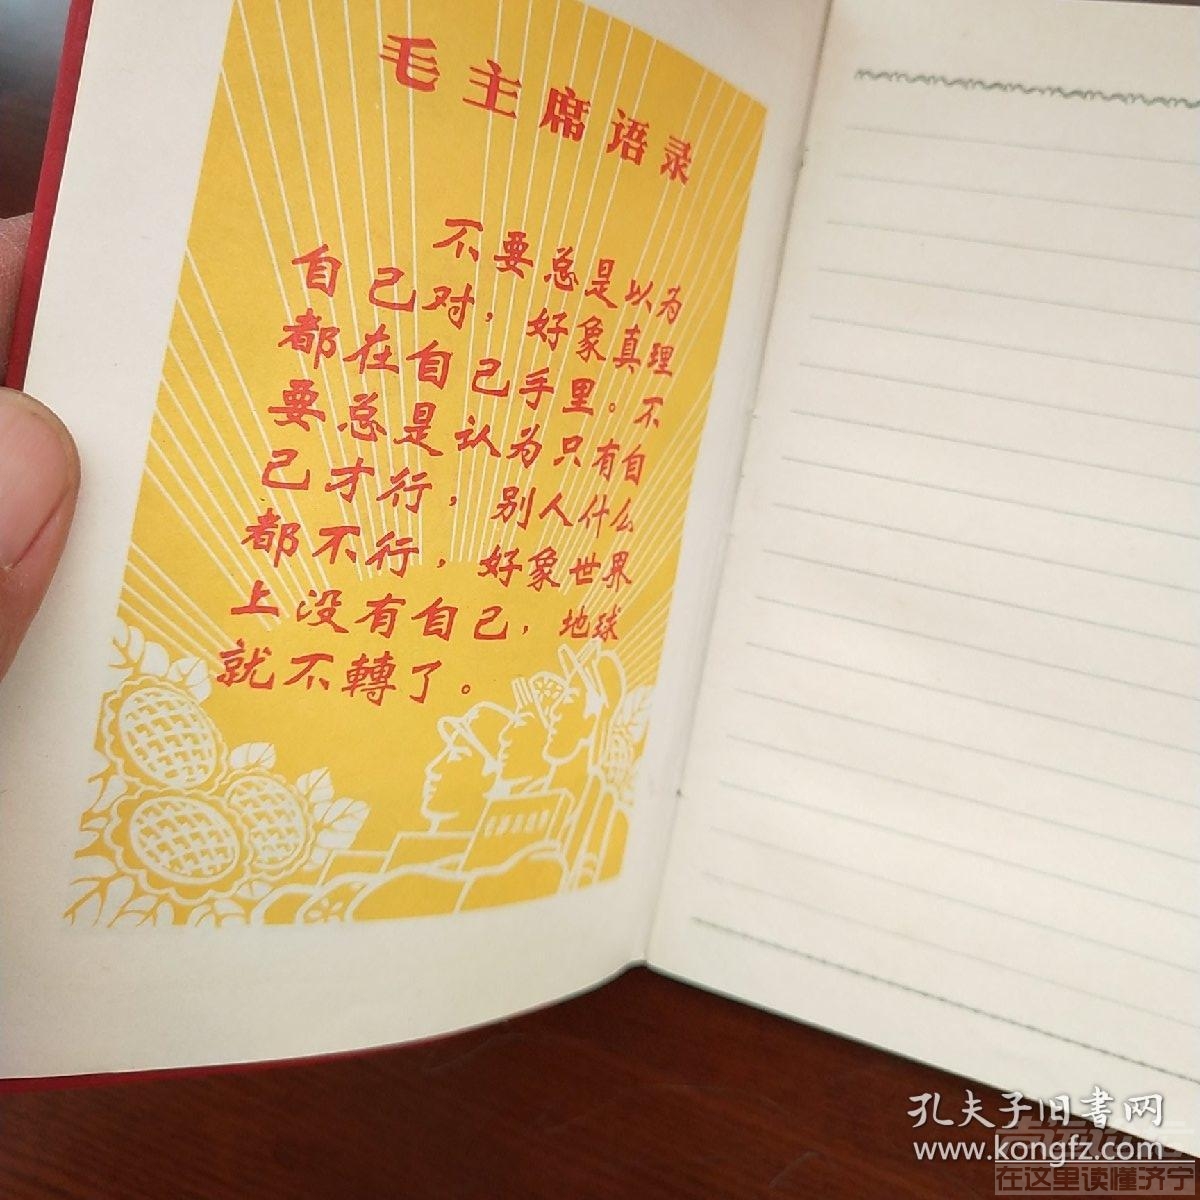 毛主席语录
不要总是以为
自己对，好象真理
都在自己手里。不
要总是认为只有自
己才行，别人什么
都不行，好象世界
上没有自己，地球
就不轉了。
孔夫子旧書网
www.kongfz.com
在这里读懂济宁